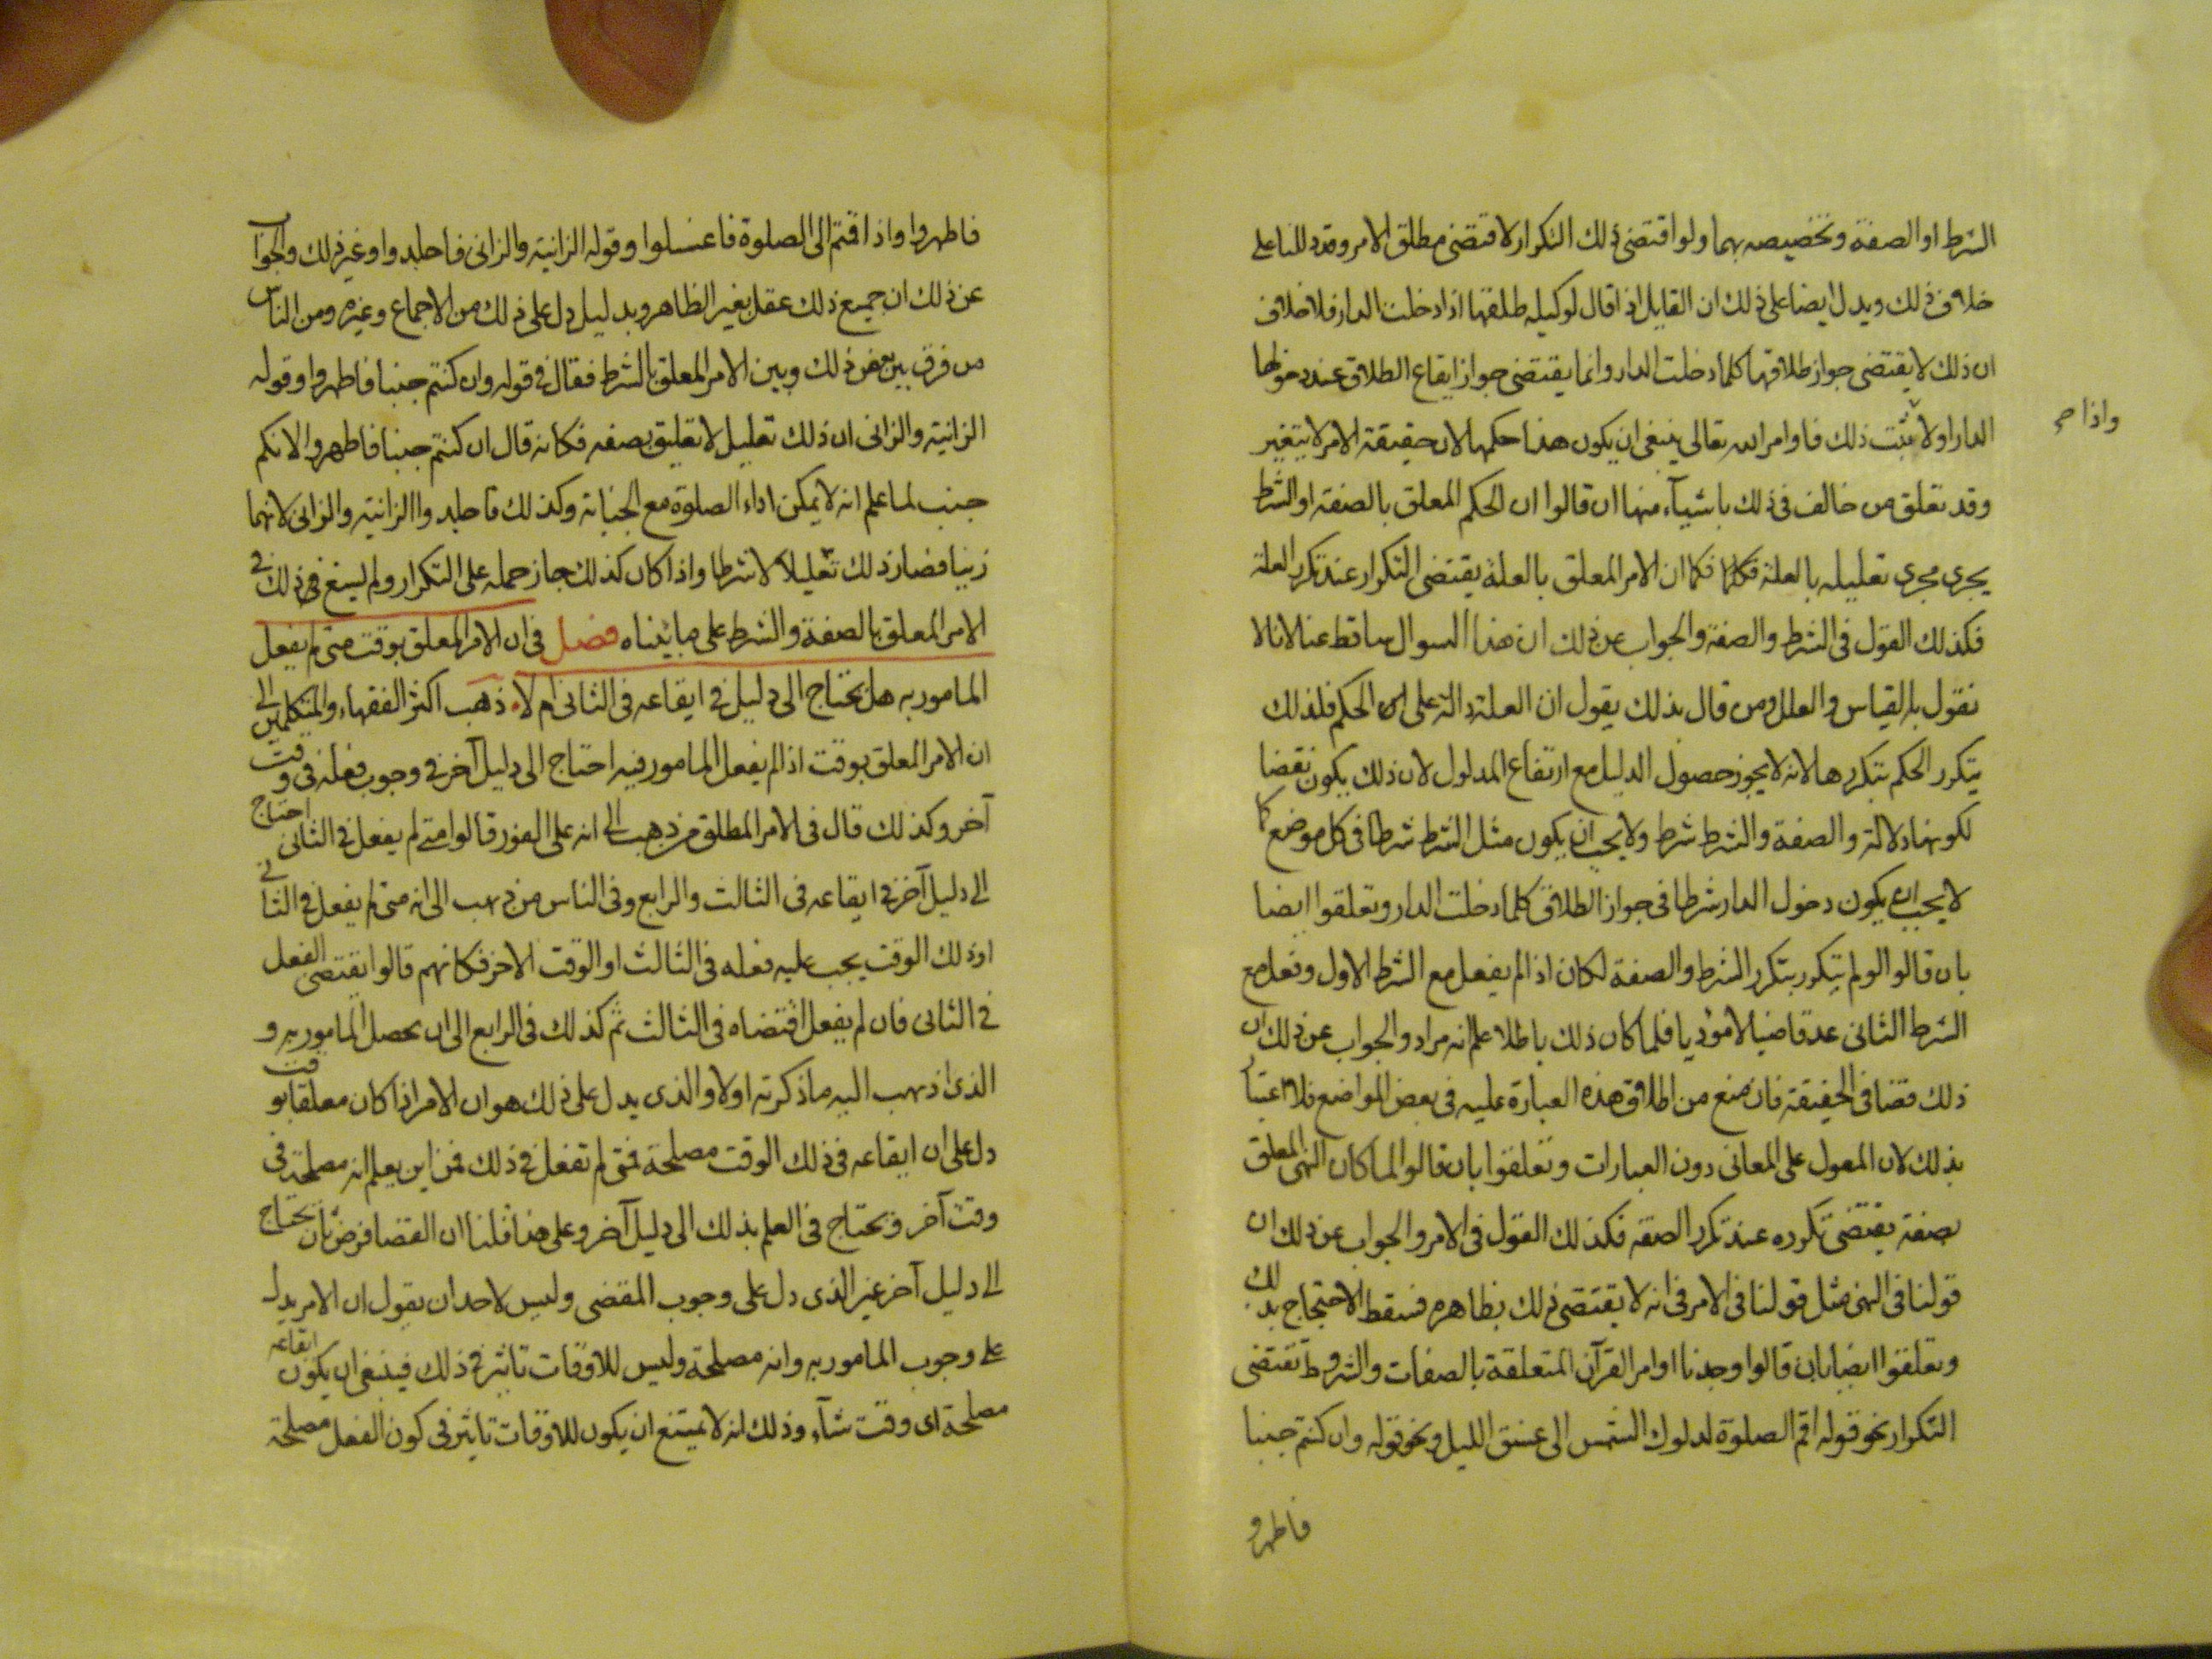 الشرط او الصفة وتخصيصه بهما ولو اقتضى ذلك التكرار لاقتضى مطلق الامر وقد دللنا على
خلاف ذلك ويدل ايضا على ذلك ان القايل اذا قال لوكيله طلقها اذا دخلت الدار فلا خلاف
ان ذلك لا يقتضى جواز طلاقها كلما دخلت الدار وانما يقتضى جواز ايقاع الطلاق عند دخولها
واذا صح
الدار اولا ثبت ذلك فاوامر الله تعالى ينبغى ان يكون هذا حكمها لان حقيقة الامر لا يتغير
وقد تعلق من خالف فى ذلك باشيآء منها ان قالوا ان الحكم المعلق بالصفة او الشرط
يجرى مجرى تعليله بالعلة فكما ان الامر المعلق بالعلة يقتضى التكرار عند تكرر العلة
فكذلك القول فى الشرط والصفة والجواب عن ذلك ان هذا السوال ساقط عنا لانا لا
نقول بالقياس والعلل ومن قال بذلك يقول ان العلة دالة على الحكم فلذلك
يتكرر الحكم بتكررها لانه لا يجوز حصول الدليل مع ارتفاع المدلول لان ذلك يكون نقضا
لكونها دلالة والصفة والشرط شرط ولا يجب ان يكون مثل الشرط شرطا فى كل موضع كما
لا يجب ان يكون دخول الدار شرطا فى جواز الطلاق كلما دخلت الدار وتعلقوا ايضا
بان قالوا لو لم يتكرر بتكرر الشرط والصفة لكان اذا لم يفعل مع الشرط الاول وفعل مع
الشرط الثانى عد قاضيا لا مؤديا فلما كان ذلك باطلا علم انه مراد والجواب عن ذلك ان
ذلك قضا فى الحقيقة فان منع من اطلاق هذه العبارة عليه فى بعض المواضع فلا اعتبار
بذلك لان المعول على المعانى دون العبارات وتعلقوا بان قالوا لما كان النهى المعلق
بصفة يقتضى تكرره عند تكرر الصفه فكذلك القول فى الامر والجواب عن ذلك ان
قولنا فى النهى مثل قولنا فى الامر فى انه لا يقتضى ذلك بظاهره فسقط الاحتجاج بذلك
وتعلقوا ايضا بان قالوا وجدنا اوامر القرآن المتعلقة بالصفات والشروط تقتضى
التكرار نحو قوله اقم الصلوة لدلوك الشمس الى غسق الليل ونحو قوله وان كنتم جنبا
فاطهرو
فاطهروا واذا قمتم الى الصلوة فاغسلوا وقوله الزانية والزانى فاجلدوا وغير ذلك والجواب
عن ذلك ان جميع ذلك عقل بغير الظاهر وبدليل دل على ذلك من الاجماع وغيره ومن الناس
من فرق بين بعض ذلك وبين الامر المعلق بالشرط فقال فى قوله وان كنتم جنبا فاطهروا وقوله
الزانية والزانى ان ذلك تعليل لا تعليق بصفه فكانه قال ان كنتم جنبا فاطهروا لانكم
جنب لما علم انه لا يمكن اداء الصلوة مع الجنابة وكذلك فاجلدوا الزانية والزانى لانهما
زنيا فصار ذلك تعليلا لا شرطا واذا كان كذلك جاز حمله على التكرار ولم يسغ فى ذلك فى
الامر المعلق بالصفة والشرط على ما بيناه فصل فى ان الامر المعلق بوقت متى لم يفعل
المامور به هل يحتاج الى دليل فى ايقاعه فى الثانى ام لا ذهب اكثر الفقهاء والمتكلمين الى
ان الامر المعلق بوقت اذا لم يفعل المامور فيه احتاج الى دليل آخر فى وجوب فعله فى وقت
آخر وكذلك قال فى الامر المطلق من ذهب الى انه على الفور قالوا متى لم يفعل فى الثانى احتاج
الى دليل آخر فى ايقاعه فى الثالث والرابع وفى الناس من ذهب الى انه متى لم يفعل فى الثانى
او ذلك الوقت يجب عليه فعله فى الثالث او الوقت الاخر فكانهم قالوا يقتضى الفعل
فى الثانى فان لم يفعل اقتضاه فى الثالث ثم كذلك فى الرابع الى ان يحصل المامور به و
الذى اذهب اليه ما ذكرته اولا والذى يدل على ذلك هو ان الامر اذا كان معلقا بوقت
دل على ان ايقاعه فى ذلك الوقت مصلحة فمتى لم تفعل فى ذلك فمن اين يعلم انه مصلحة فى
وقت آخر ويحتاج فى العلم بذلك الى دليل آخر وعلى هذا قلنا ان القضا فرض ثان يحتاج
الى دليل آخر غير الذى دل على وجوب المقضى وليس لاحد ان يقول ان الامر يدل
على وجوب المامور به وانه مصلحة وليس للاوقات تاثير فى ذلك فينبغى ان يكون ايقاعه
مصلحة اى وقت شآء وذلك انه لا يمتنع ان يكون للاوقات تاثير فى كون الفعل مصلحة